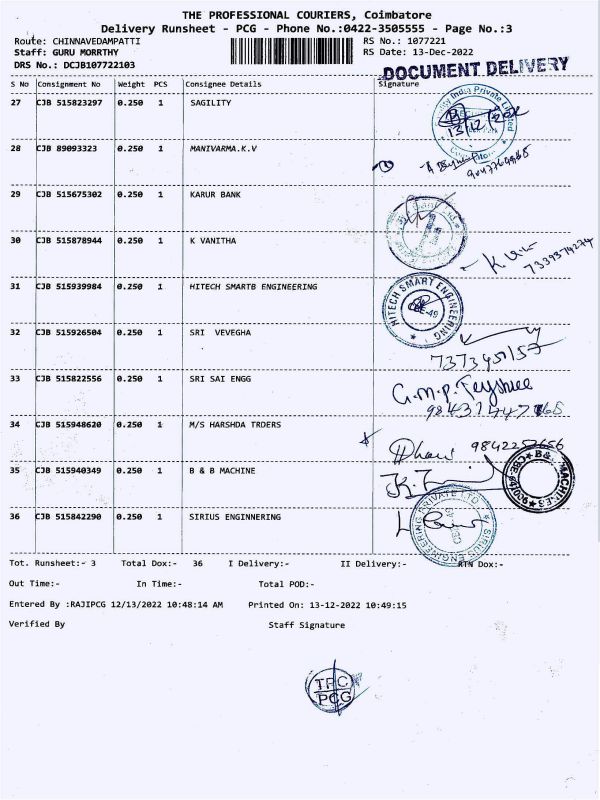 THE PROFESSIONAL COURIERS, Coimbatore
Delivery Runsheet - PCG - Phone No.:0422-3505555 - Page No.:3
Route: CHINNAVEDAMPATTI RS No.: 1077221
Staff: GURU MORRTHY RS Date: 13-Dec-2022
DRS No.: DCJB107722103
DOCUMENT DELIVERY
S No Consignment No Weight PCS Consignee Details Signature
27 CJB 515823297 0.250 1 SAGILITY
13/12/2022
28 CJB 89093323 0.250 1 MANIVARMA.K.V
29 CJB 515675302 0.250 1 KARUR BANK
30 CJB 515878944 0.250 1 K VANITHA
7339374274
31 CJB 515939984 0.250 1 HITECH SMARTB ENGINEERING
HITECH SMART ENGINEERING
CBE-49
32 CJB 515926504 0.250 1 SRI VEVEGHA
33 CJB 515822556 0.250 1 SRI SAI ENGG
34 CJB 515948620 0.250 1 M/S HARSHDA TRDERS
35 CJB 515940349 0.250 1 B & B MACHINE
36 CJB 515842290 0.250 1 SIRIUS ENGINNERING
SIRIUS ENGINEERING PRIVATE LTD.
Tot. Runsheet:- 3 Total Dox:- 36 I Delivery:- II Delivery:- RTN Dox:-
Out Time:- In Time:- Total POD:-
Entered By :RAJIPCG 12/13/2022 10:48:14 AM Printed On: 13-12-2022 10:49:15
Verified By Staff Signature
TPC
PCG